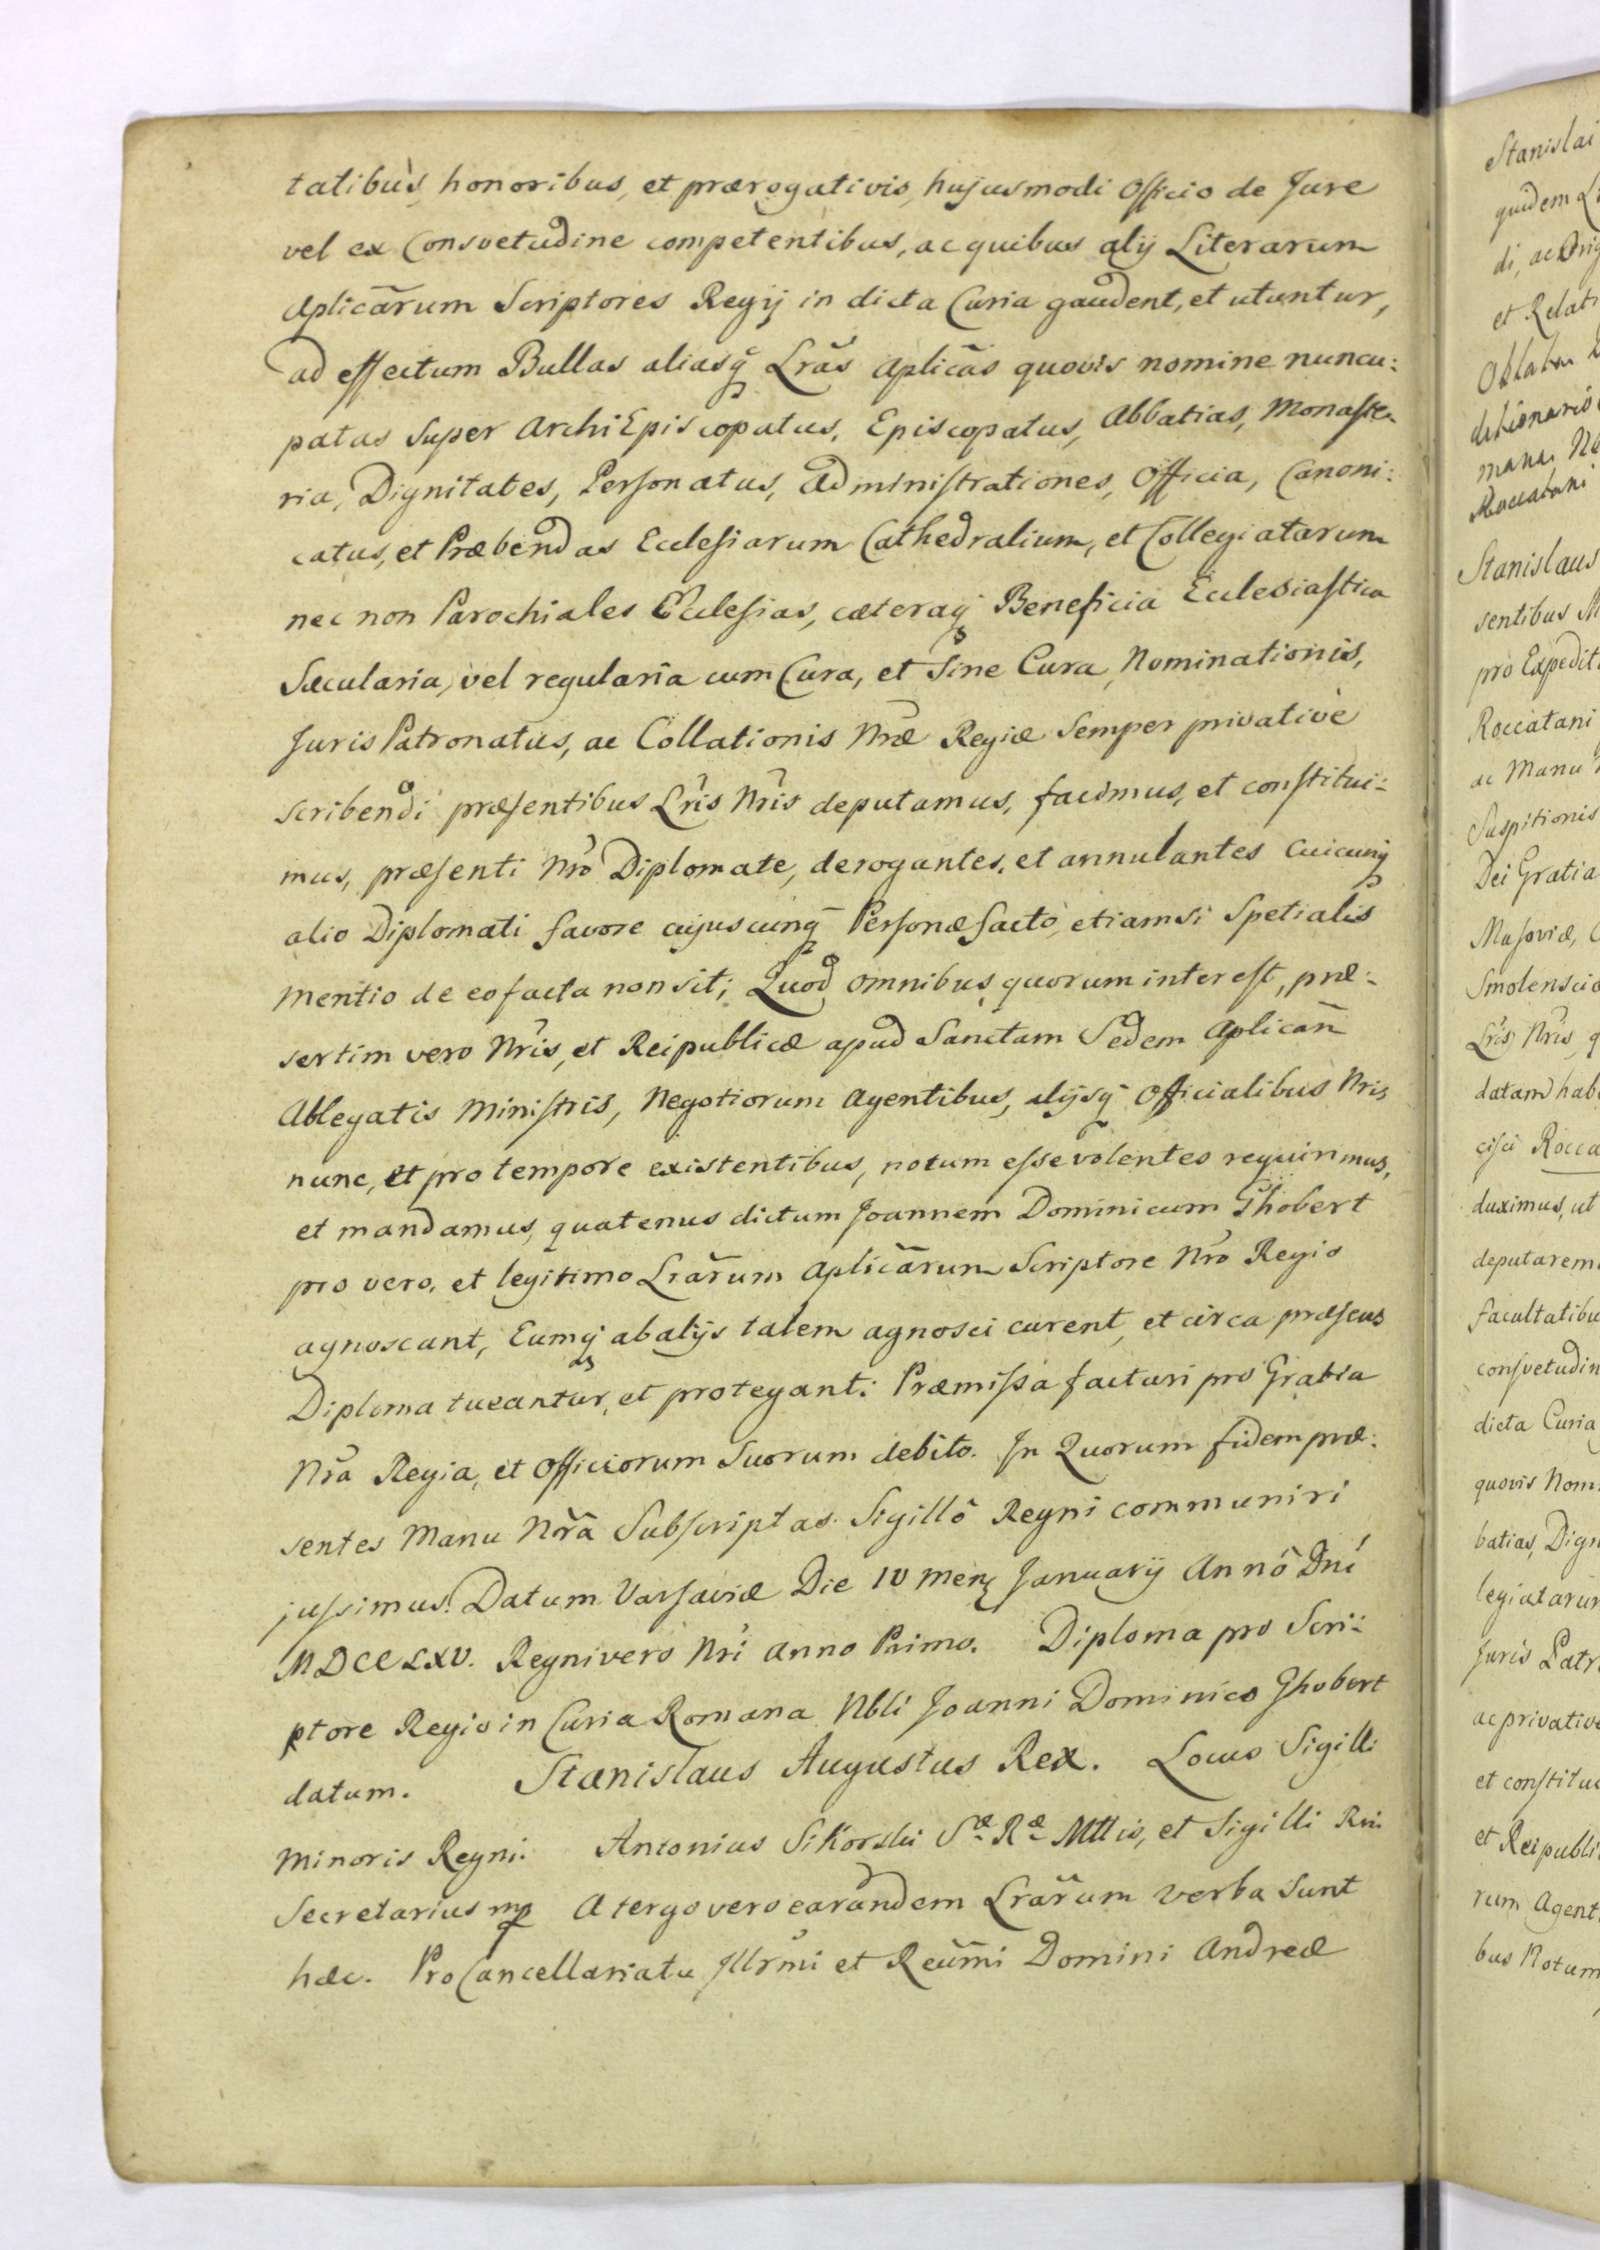 tatibus, honoribus, et prærogativis, hujusmodi Officio de Jure
vel ex Consvetudine competentibus, ac quibus alij Literarum
Aplicãrum Scriptores Regij in dicta Curia gaudent, et utuntur,
ad effectum Bullas aliasq̃ Lrãs Aplicãs quovis nomine nuncu:
patas super ArchiEpiscopatus, Episcopatus, Abbatias, Monaste-
ria, Dignitates, Personatus, Administrationes, Officia, Canoni:
catus, et Præbendas Ecclesiarum Cathedralium, et Collegiatarum
nec non Parochiales Ecclesias, cæteraq̃ Beneficia Ecclesiastica
Sæcularia, vel regularia cum Cura, et Sine Cura, Nominationis,
Juris Patronatus, ac Collationis Nræ Regiæ Semper privativè
scribendi præsentibus Lris Nris deputamus, facimus, et constitui:
mus, præsenti Nro Diplomate, derogantes, et annulantes cuicunq̃
alio Diplomati favore cujuscunq̃ Personæ facto, etiamsi Spetialis
mentio de eo facta non sit; Quod omnibus, quorum interest, præ:
sertim vero Nris, et Reipublicæ apud Sanctam Sedem Aplicañ
Ablegatis Ministris, Negotiorum Agentibus, alijsq̃ Officialibus Nris
nunc, et pro tempore existentibus, notum esse volentes requirimus,
et mandamus, quatenus dictum Joannem Dominicum Ghobert
pro vero, et legitimo Lrãrum Aplicãrum Scriptore Nro Regio
agnoscant, Eumq̃ ab alijs talem agnosci curent, et circa præsens
Diploma tueantur, et protegant: Præmissa facturi pro Gratia
Nra Regia, et Officiorum Suorum debito. In Quorum fidem præ:
sentes Manu Nrã Subscriptas Sigillô Regni communiri
jussimus. Datum Varsaviæ Die 10 Mens Januarij Annô Dni
MDCCLXV. Regni vero Nri Anno Primo. Diploma pro Scri:
ptore Regio in Curia Romana Nbli Joanni Dominico Ghobert
datum. Stanislaus Augustus Rex. Locus Sigilli
Minoris Regni. Antonius Sikorski Sæ Ræ Mttis, et Sigilli Rni
Secretarius mp A tergo vero earundem Lrãrum verba Sunt
hæc. ProCancellariatu Illrmi et Reũmi Domini Andreæ
Stanislai
quidem
et
Stanislaus
sentibus
Roccatani
ac Manu
Suspitionis
Dei Gratia
Masoviæ,
Lris Nris,
datam
cisci Rocca
duximus, ut
dicta Curia
quovis
batias,
Juris
ac
et